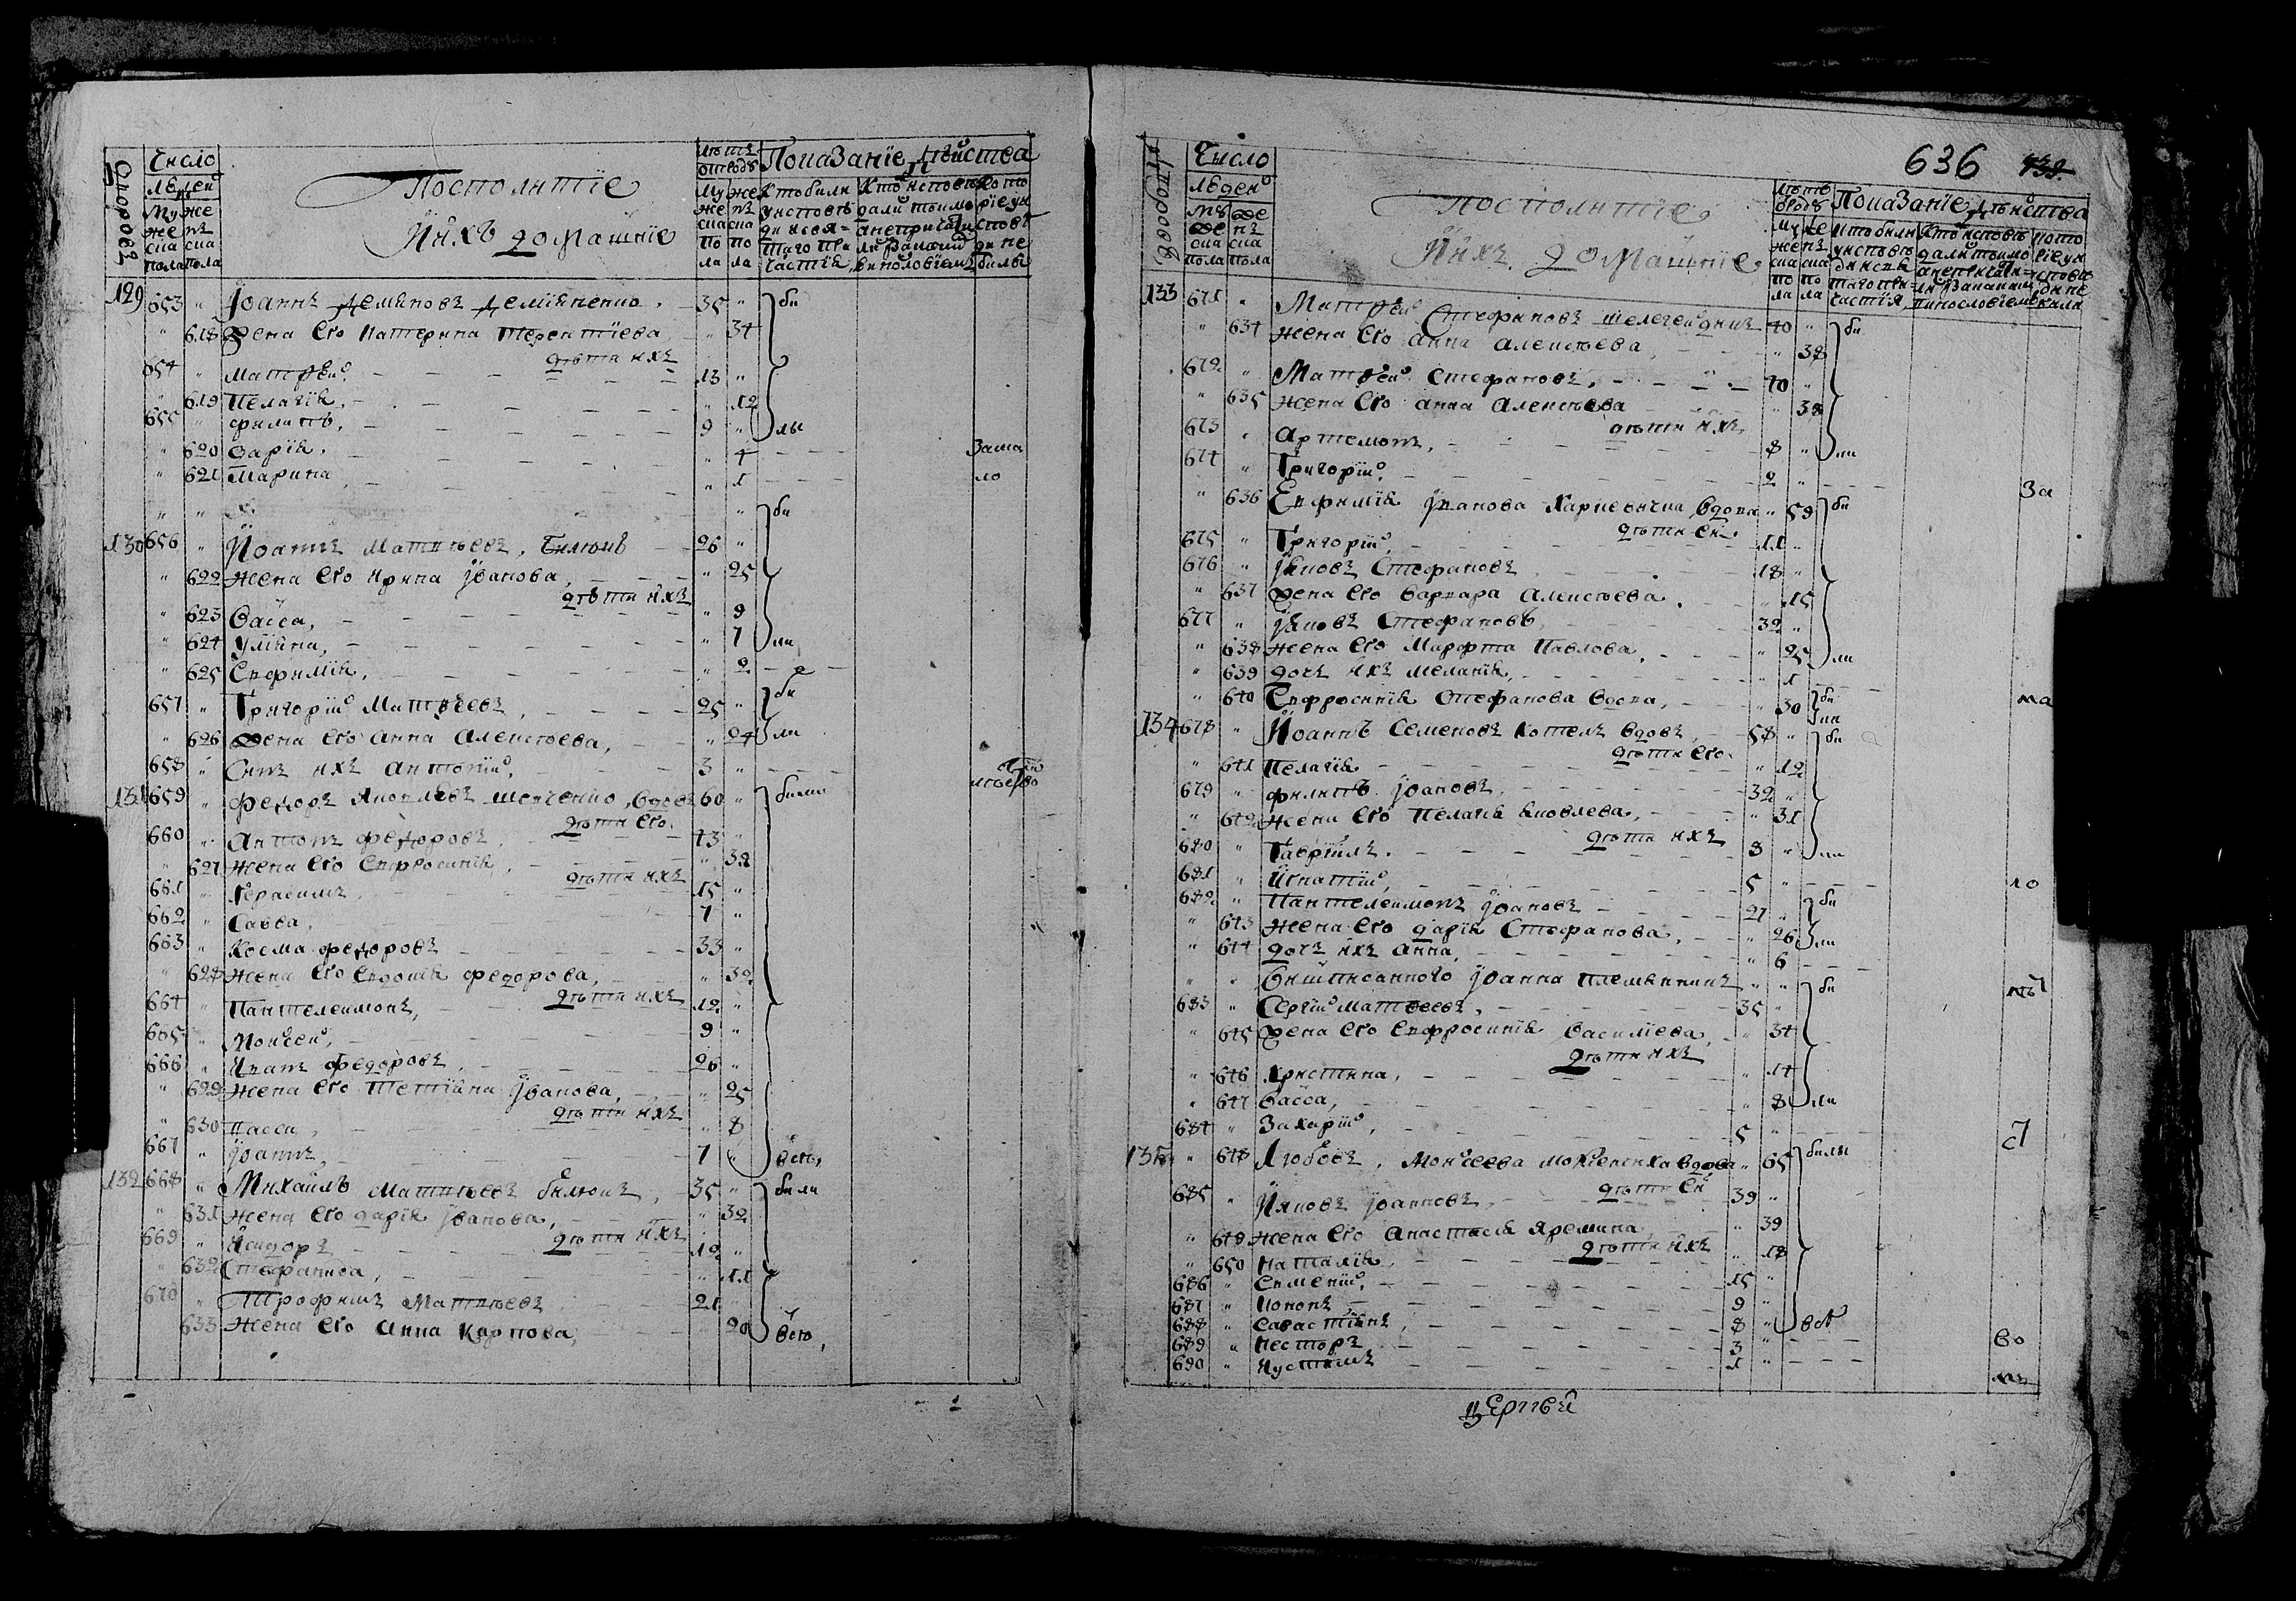 Число
людей
Посполитïе
Ихъ домашнïе
Показанïе дѣйства
129 653 " Иоаннъ Демяновъ Демïяненко. 35 " би
" 618 Жена его Катерина Терентïева 34
дѣти ихъ
654 " Матфей. 13 "
" 619 Пелагïя. " 12
655 " Филипъ, 9 " ли
" 620 Дарïя. " 4 За ма
" 621 Марина " 1 ло
130 656 " Иоаннъ Матвѣевъ, Билюкъ 26 " би
" 622 Жена его Ирина Иванова, " 25
дѣти ихъ
" 623 Васса, " 9
" 624 Улïяна, " 7 ли
" 625 Евфимïя, " 2
657 " Григорïй Матвѣевъ, 25 " би
" 626 Жена его Анна Алексѣева, " 24 ли
658 " Синъ ихъ Антонïй, 3 "
131 659 " Федоръ Яковлевъ Шевченко, вдовъ 60 " били
дѣти его.
660 " Антонъ Федоровъ. 43 "
" 627 Жена его Евфросинïя, " 32
дѣти ихъ
661 " Герасимъ, 15 "
662 " Савва, 7 "
663 " Косма Федоровъ 33 "
" 628 Жена его Евдокïя Федорова, " 32
дѣти ихъ
664 " Пантелеимонъ, 12 "
665 " Моисей, 9 "
666 " Иванъ Федоровъ, 26 "
" 629 Жена его Тетïяна Иванова, " 25
дѣти ихъ
" 630 Васса, " 8
667 " Иоаннъ, 7 " всѣ,
132 668 " Михаилъ Матвѣевъ Билюкъ, 35 " били
" 631 Жена его Дарïя Иванова, " 32
дѣти ихъ
669 " Исидоръ 12 "
" 632 Стефанида, " 11
670 " Трофимъ Матвѣевъ 21
633 Жена его Анна Карпова, 20 всѣ,
636
Число
людей
Посполитïе
Ихъ домашнïе
Показанïе дѣйства
133 671 " Матфей Стефановъ Шелегейдикъ 40 " би
" 634 Жена его Анна Алексѣева, " 38
672 " Матфей Стефановъ, 40 "
" 635 Жена его Анна Алексѣева " 38
дѣти ихъ
673 " Артемонъ, 8 " ли
674 " Григорïй, 2 " За
" 636 Евфимïя Иванова Карпевичка вдова " 59 би
дѣти ея.
675 " Григорïй, 11 "
676 " Яковъ Стефановъ 18 "
" 637 Жена его Варвара Алексѣева. " 15
677 " Яковъ Стефановъ, 32 "
" 638 Жена его Марфта Павлова, " 25 ли
" 639 Дочъ ихъ Меланïя, " 1
" 640 Евфросинïя Стефанова вдова, " 30 би ла ма
134 678 " Иоаннъ Семеновъ Котелъ вдовъ, 58 " би
дѣти его.
" 641 Пелагïя " 12
679 " Филипъ Иоановъ, 32 "
" 642 Жена его Пелагïя Яковлева, " 31
дѣти ихъ
680 " Гаврïилъ. 8 " ли
681 " Игнатïй, 5 " ло
682 " Пантелеимонъ Иоановъ 27 " би
" 643 Жена его Дарïя Стефанова, " 26 ли
" 644 Дочъ ихъ Анна, " 6
" " Вишписанного Иоанна племянникъ " " би
683 " Сергïй Матвеевъ, 35 "
" 645 Жена его Евфросинïя Василïева, " 34
дѣти ихъ
" 646 Христина, " 14
" 647 Васса, " 8 ли
684 " Захарïй, 5 "
135 " 648 Любовъ, Моисеева Мокïенкха вдова " 65 били
дѣти ея
685 " Ияковъ Иоанновъ, 39 "
" 649 Жена его Анастасïя Яремина " 39
дѣти ихъ
" 650 Наталïя, " 18
686 " Евменïй, 15 "
687 " Кононъ 9 "
688 " Савастïянъ, 8 " всѣ
689 " Несторъ 3 " во
690 " Иустинъ 1 "
церкви